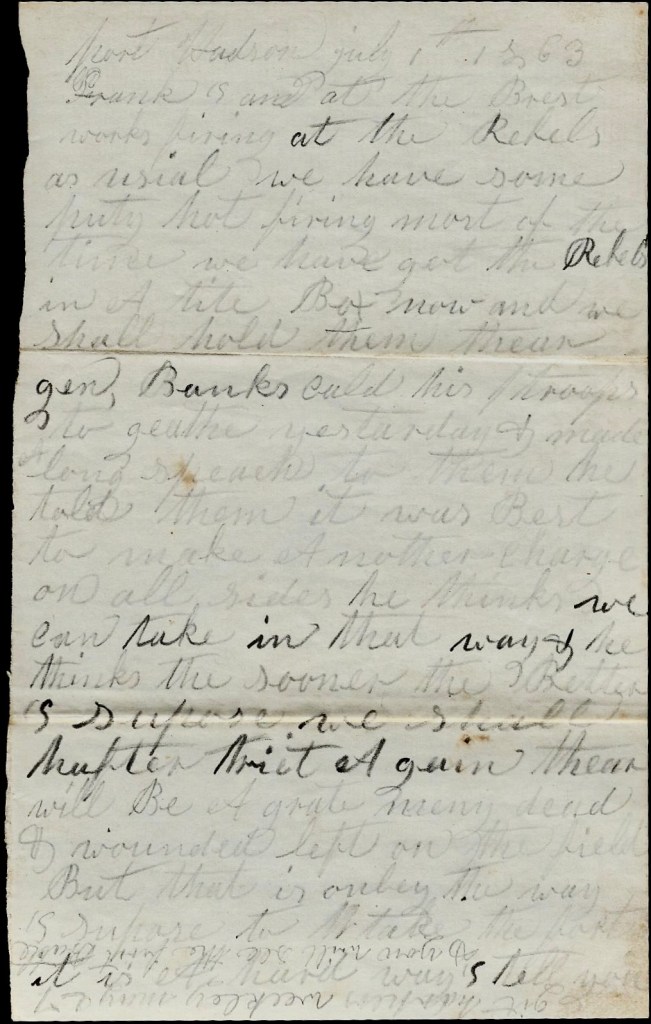 port Hudson july 1th 1863
Frank I am at the Brest
works firing at the Rebels
as usial we have some
puty hot firing most of the
time we have got the Rebels
in A tite Box now and we
shall hold them thear
gen, Banks cald his troops
to geathe yesturday & made
long speach to them he
told them it was Best
to make A nother charge
on all sides he thinks we
can take in that way & he
thinks the sooner the Better
I supose we shall
hafter triet A gain thear
will Be A grate meny dead
& wounded left on the field
But that is onley the way
I supose to take the fort
it is A hard way I tell you
& you will see the
git harpers weekley